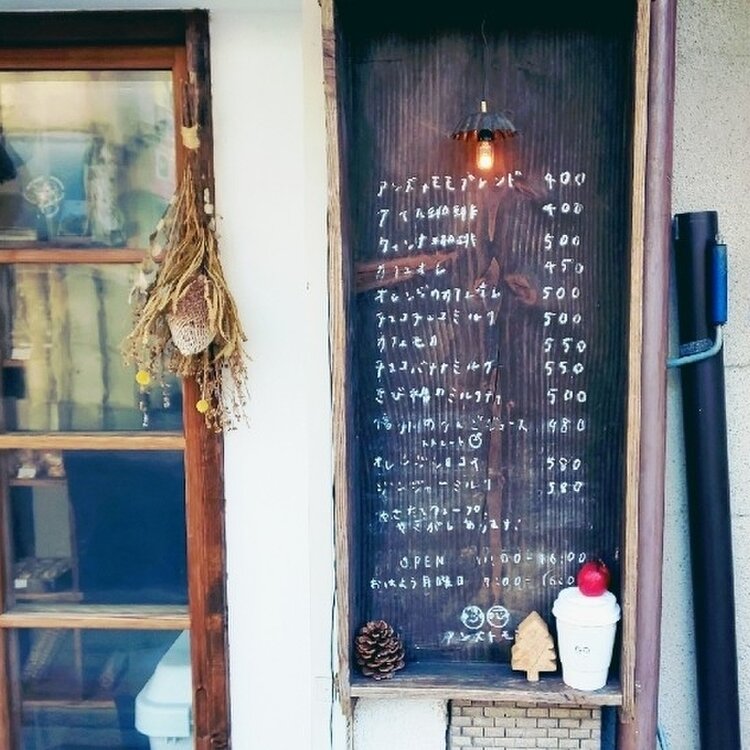 アンズトモモブレンド 400
アイス珈琲 400
ウィンナ珈琲 500
カフェオレ 450
オレンジカフェオレ 500
チョコチョコミルク 500
カフェモカ 550
チョコバナナミルク 550
きび糖のミルクティ 500
信州のりんごジュース 480
ストレート
オレンジショコラ 580
ジンジャーミルク 580
やきたてクレープ、
やきがしあります!
OPEN 11:00-16:00
おはよう月曜日 7:00-16:00
アンズトモモ